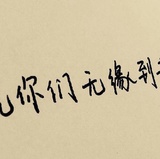 你们无缘到